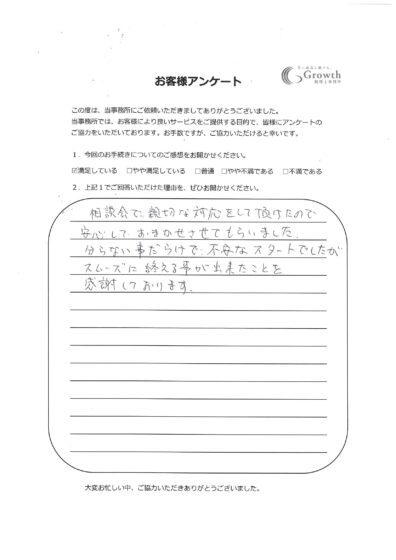 Growth
お客様アンケート
この度は、当事務所にご依頼いただきましてありがとうございました。
当事務所では、お客様により良いサービスをご提供する目的で、皆様にアンケートの
ご協力をいただいております。お手数ですが、ご協力いただけると幸いです。
1．今回のお手続きについてのご感想をお聞かせください。
☑満足している □やや満足している □普通 □やや不満である □不満である
2．上記1でご回答いただけた理由を、ぜひお聞かせください。
相談会で、親切な対応をして頂けたので
安心して、おまかせさせてもらいました。
分らない事だらけで、不安なスタートでしたが
スムーズに終える事が出来たことを
感謝しております。
大変お忙しい中、ご協力いただきありがとうございました。